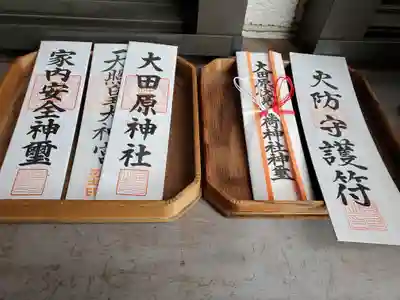 家内安全神璽
天照皇大神宮
大田原神社
大田原稲荷神社神璽
火防守護符